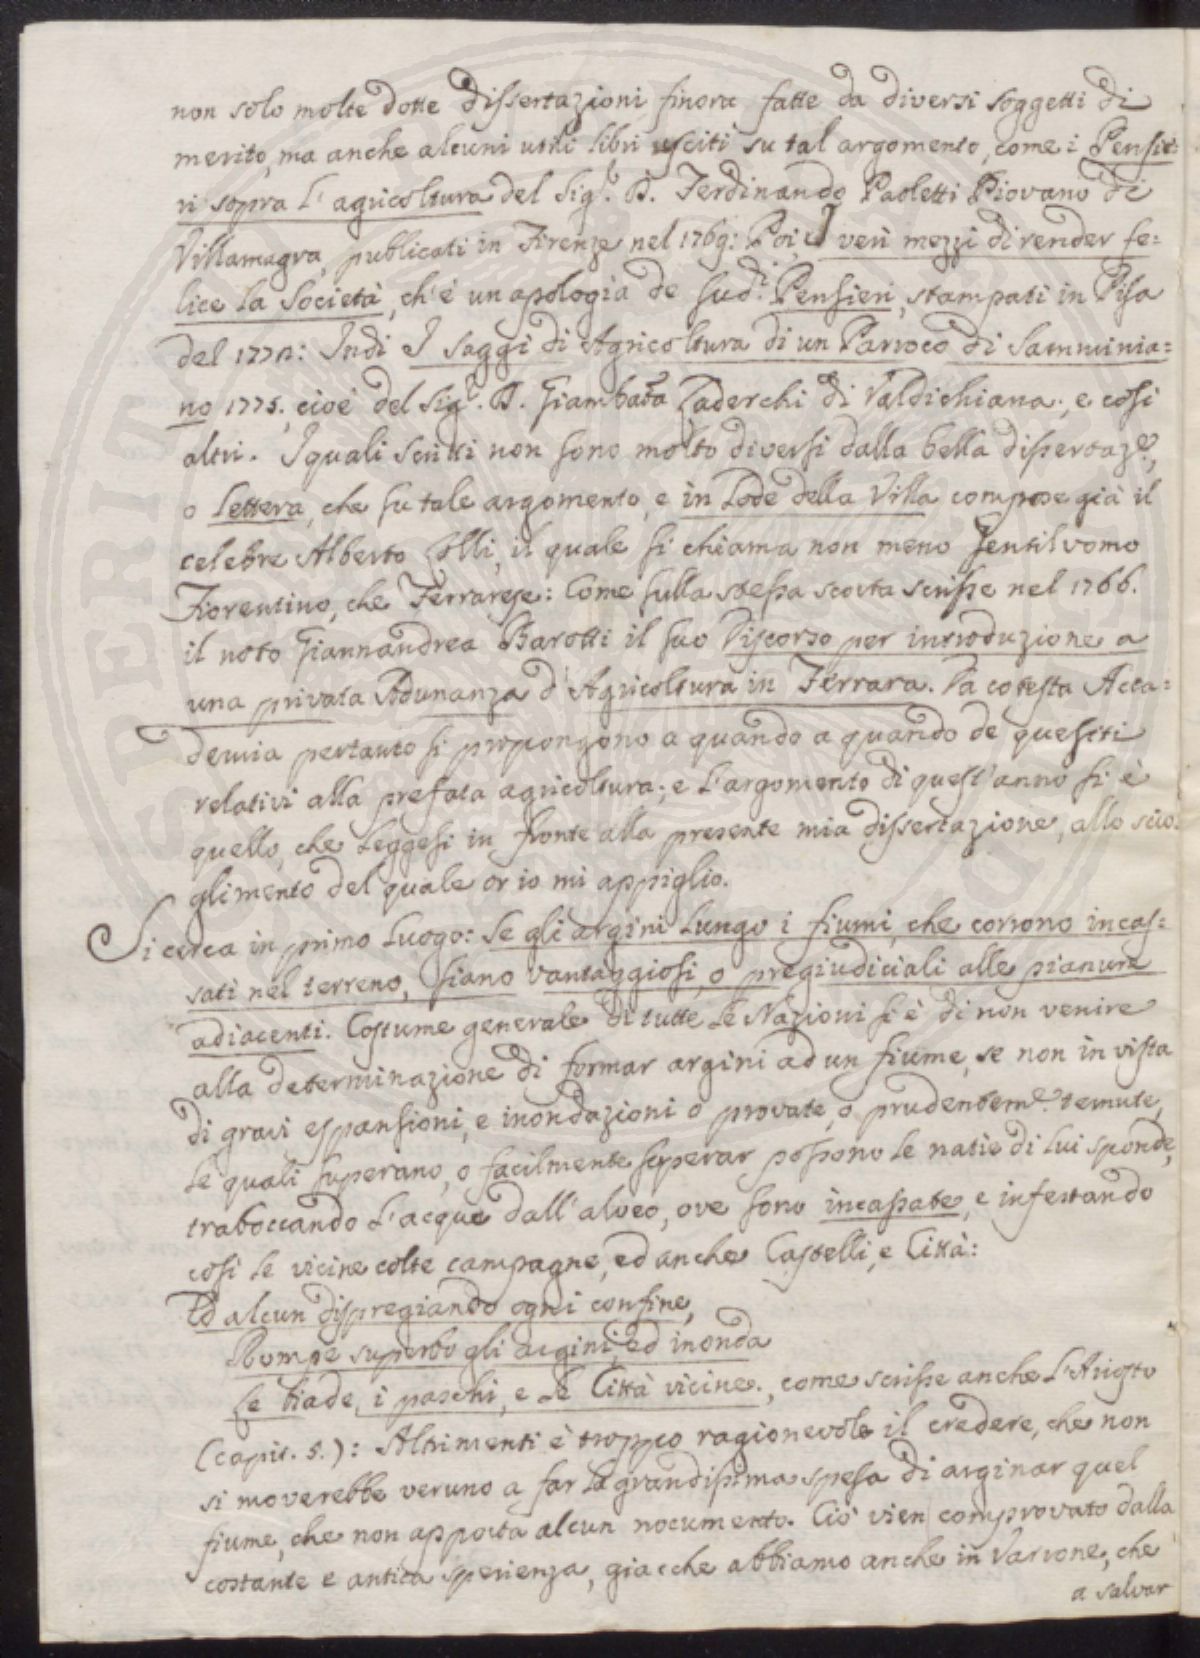 non solo molte dotte dissertazioni finora fatte da diversi soggetti di
merito, ma anche alcuni utili libri usciti su tal argomento, come i Pensie=
ri sopra l'agricoltura del Sig.r D. Ferdinando Paoletti Piovano di
Villamagra, publicati in Firenze nel 1769: Poi I veri mezzi di render fe=
lice la Società, ch'è un apologia de sud.i Pensieri, stampati in Pisa
del : Indi I saggi di Agricoltura di un Parroco di Samminia=
no 1775. cioè del Sig.r D. Giambatta Landerchi di Valdichiana; e così
altri. I quali scritti non sono molto diversi dalla bella dissertaz.e,
o Lettera, che su tale argomento, e in Lode della Villa compose già il
celebre Alberto Lolli, il quale si chiama non meno Gentilvomo
Fiorentino, che Ferrarese: Come sulla stessa scorta scrisse nel 1766.
il noto Giannandrea Barotti il suo Discorso per introduzione a
una privata Adunanza d'Agricoltura in Ferrara. Da cotesta Acca=
demia pertanto si propongono a quando a quando de quesiti
relativi alla prefata agricoltura; e l'argomento di quest'anno si è
quello, che leggesi in fronte alla presente mia dissertazione, allo scio=
glimento del quale or io mi appiglio.
Si cerca in primo luogo: Se gli argini lungo i fiumi, che corrono incas=
sati nel terreno, siano vantaggiosi, o pregiudiciali alle pianure
adiacenti. Costume generale di tutte le Nazioni si è di non venire
alla determinazione di formar argini ad un fiume, se non in vista
di gravi espansioni, e inondazioni o provate, o prudentem.e temute,
le quali superano, o facilmente superar possono le natie di lui sponde,
traboccando l'acque dall'alveo, ove sono incassate, e infestando
così le vicine colte campagne, ed anche Castelli, e Città:
Ed alcun dispregiando ogni confine,
Rompe superbo gli argini, ed inonda
Le biade, i paschi, e le Città vicine., come scrisse anche l'Ariosto
(capit. 5.): Altrimenti è troppo ragionevole il credere, che non
si moverebbe veruno a far la grandissima spesa di arginar quel
fiume, che non apporta alcun nocumento. Ciò vien comprovato dalla
costante e antica sperienza, giacche abbiamo anche in Varrone, che
a salvar